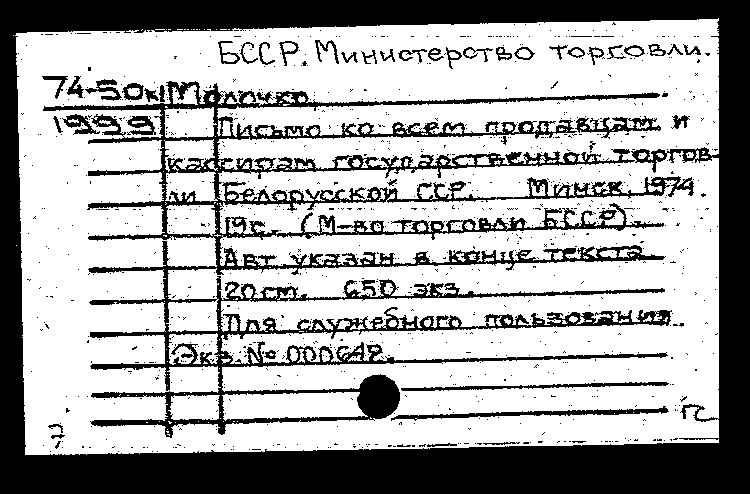 БССР. Министерство торговли.
74-50к Молочко,
1999 Письмо ко всем продавцам и
кассирам государственной торгов-
ли Белорусской ССР. Минск, 1974.
19с. (М-во торговли БССР).
Авт указан в конце текста
20см. 650 экз.
Для служебного пользования.
Экз. № 000648.
7